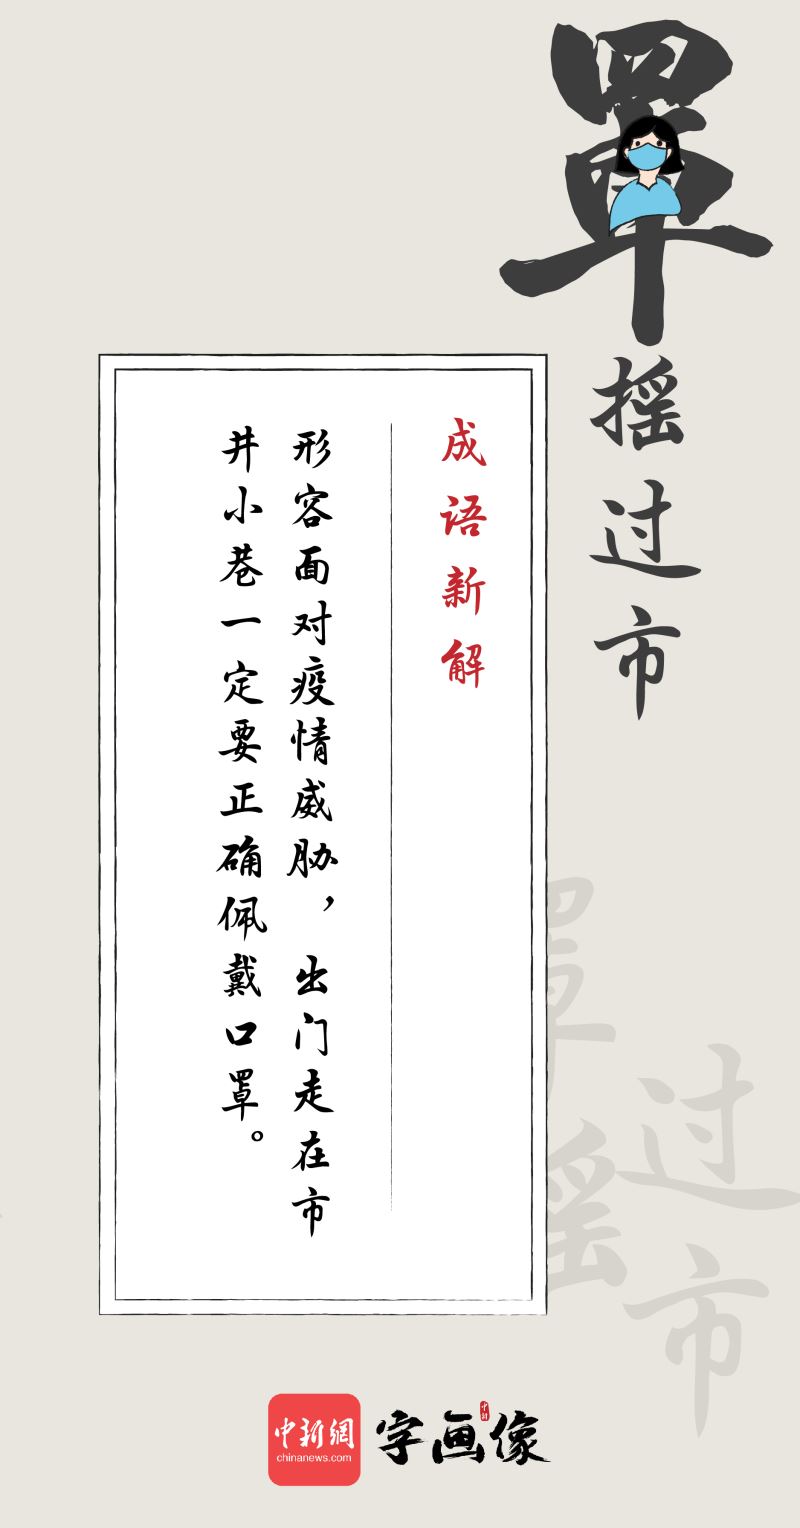 罩摇过市
成语新解
形容面对疫情威胁，出门走在市
井小巷一定要正确佩戴口罩。
罩摇
过市
中新網
chinanews.com
中新
字画像